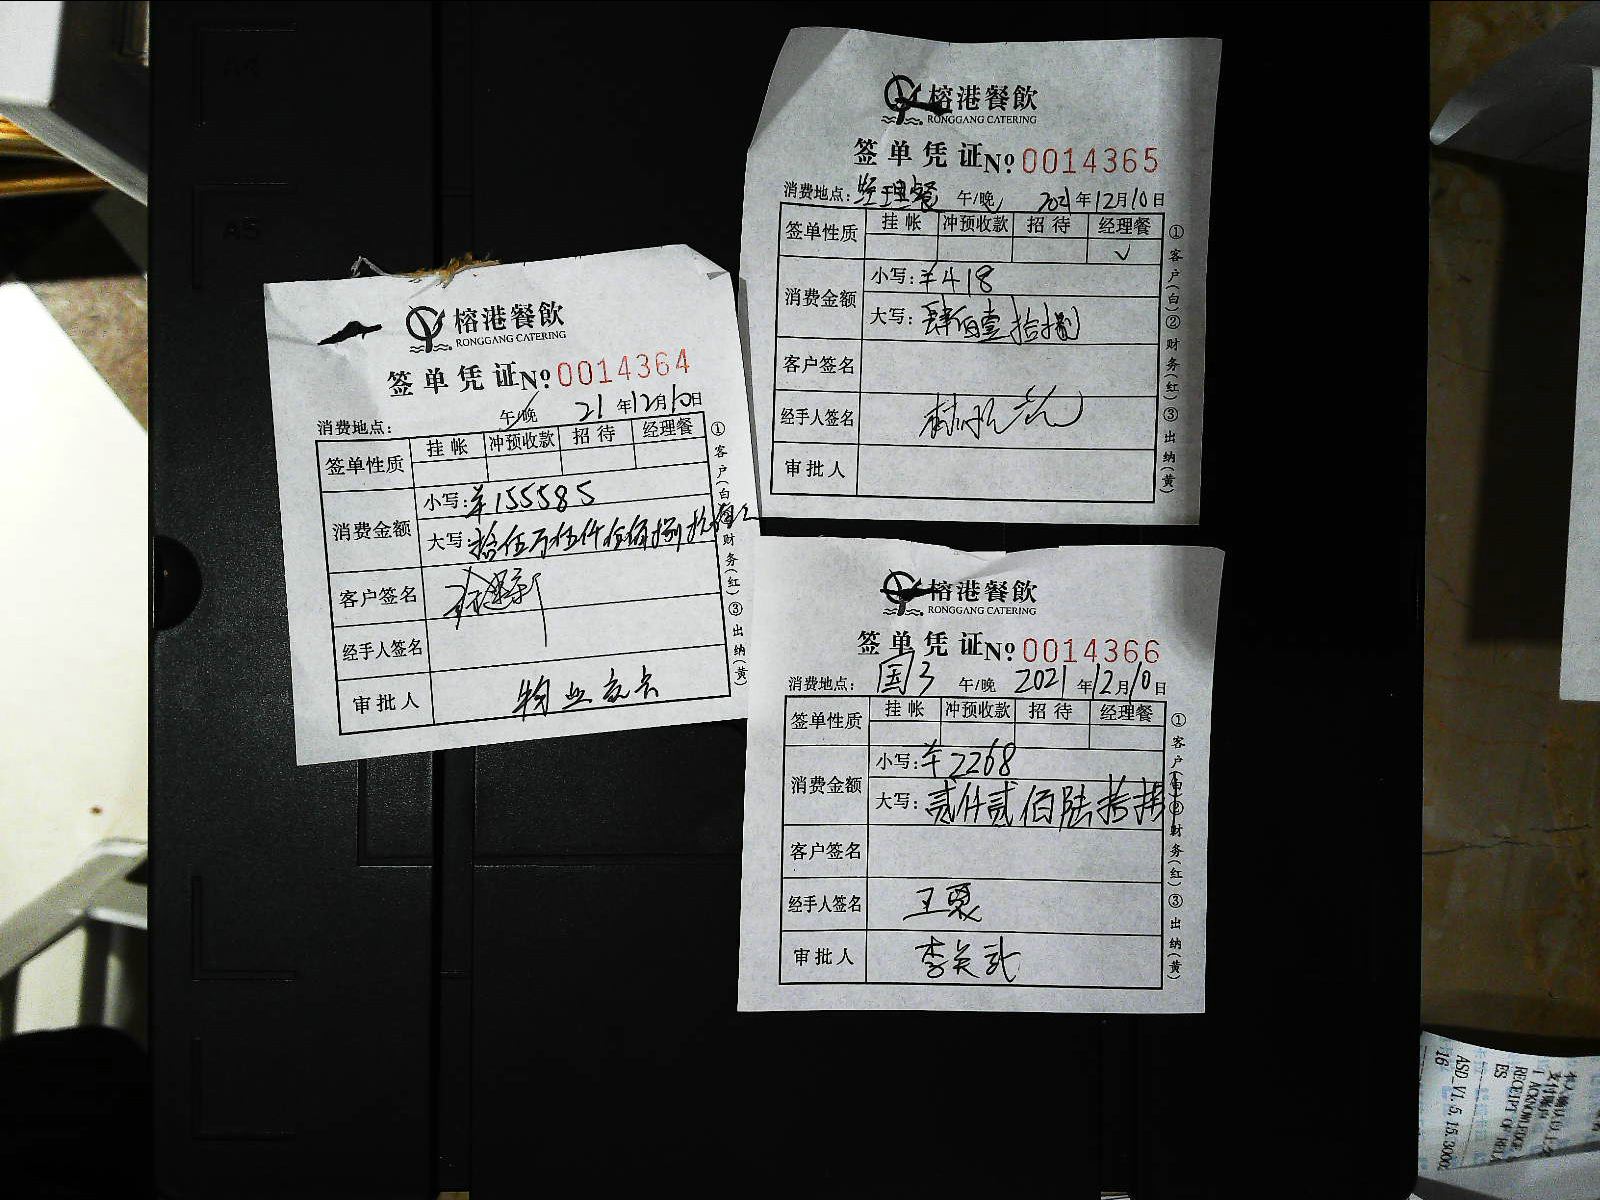 榕港餐飲
RONGGANG CATERING
签单凭证No:0014365
消费地点:经理餐 午/晚 2021年12月10日
签单性质 挂帐 冲预收款 招待 经理餐
✓
消费金额 小写:¥418
大写:肆佰壹拾捌
客户签名
经手人签名
审批人
①客户(白)②财务(红)③出纳(黄)
榕港餐飲
RONGGANG CATERING
签单凭证No:0014364
消费地点: 午/晚 21年12月10日
签单性质 挂帐 冲预收款 招待 经理餐
消费金额 小写:¥155585
大写:拾伍万伍仟伍佰捌拾
客户签名
经手人签名
审批人 物业
①客户(白 财务(红)③出纳(黄)
榕港餐飲
RONGGANG CATERING
签单凭证No:0014366
消费地点:国3 午/晚 2021年12月10日
签单性质 挂帐 冲预收款 招待 经理餐
消费金额 小写:¥2268
大写:贰仟贰佰陆拾捌
客户签名
经手人签名 王
审批人 李
①客户(白)②财务(红)③出纳(黄)
A5
ASD_V1.5.15.3000
16
I ACKNOWLEDGE
RECEIPT OF
ES